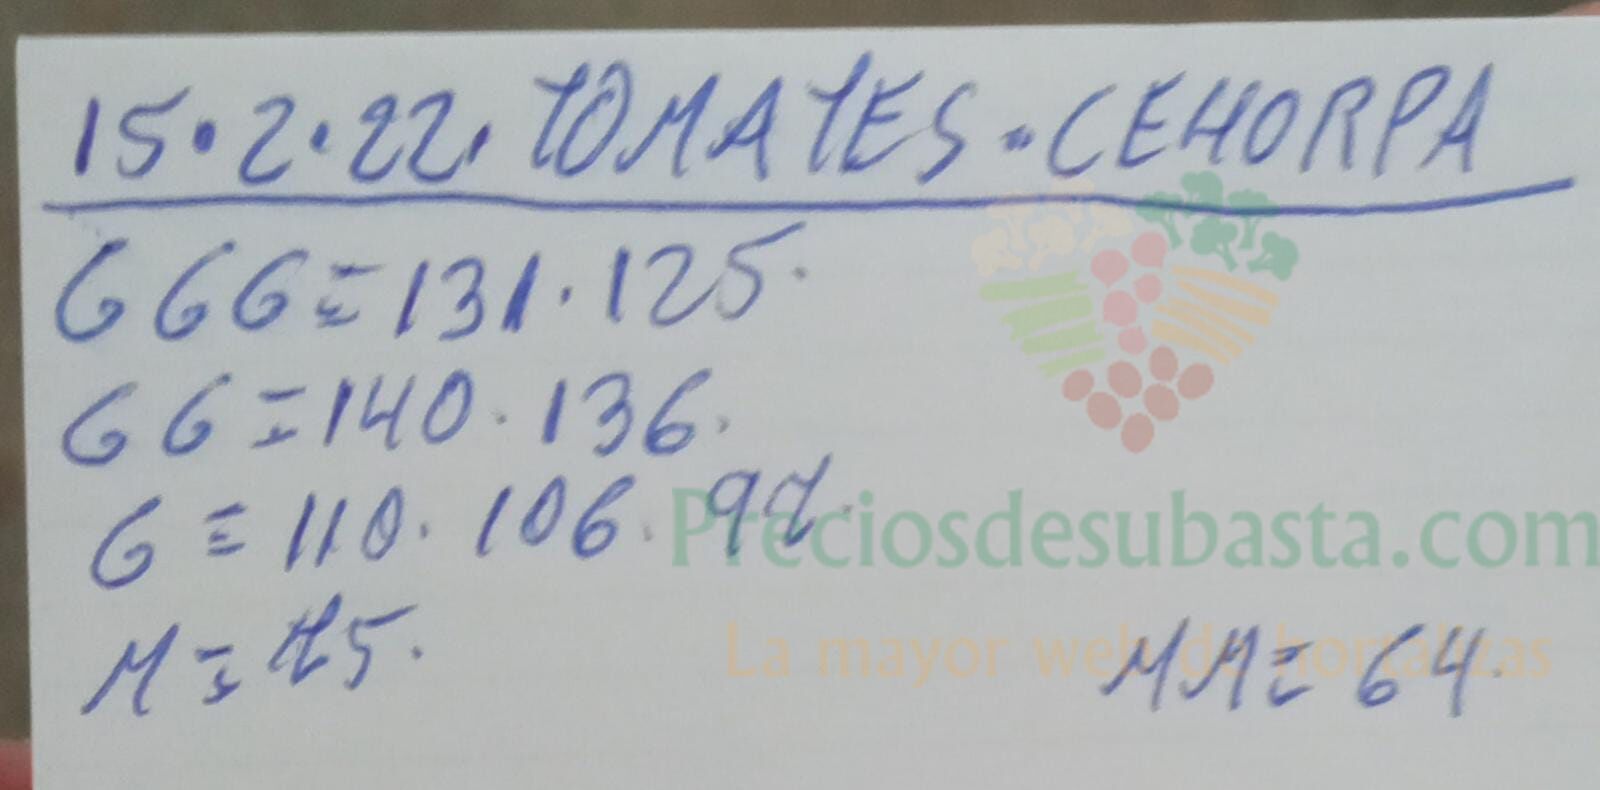 15.2.22. TOMATES.CEHORPA
GGG=131.125.
GG=140.136.
G=110.106.
Preciosdesubasta.com
La mayor web de hortalizas
M= MM=64.